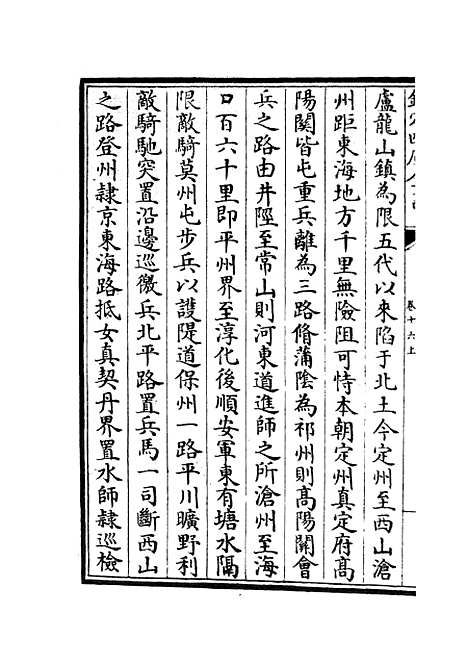 欽定四庫全書
卷十六上
盧龍山鎮為限五代以來陷于北土今定州至西山滄
州距東海地方千里無險阻可恃本朝定州真定府髙
陽闗皆屯重兵離為三路脩蒲隂為祁州則髙陽闗㑹
兵之路由井陘至常山則河東道進師之所滄州至海
口百六十里即平州界至淳化後順安軍東有塘水隔
限敵騎莫州屯步兵以䕶隄道保州一路平川曠野利
敵騎馳突置沿邊巡徼兵北平路置兵馬一司斷西山
之路登州隷京東海路抵女真契丹界置水師隷巡檢